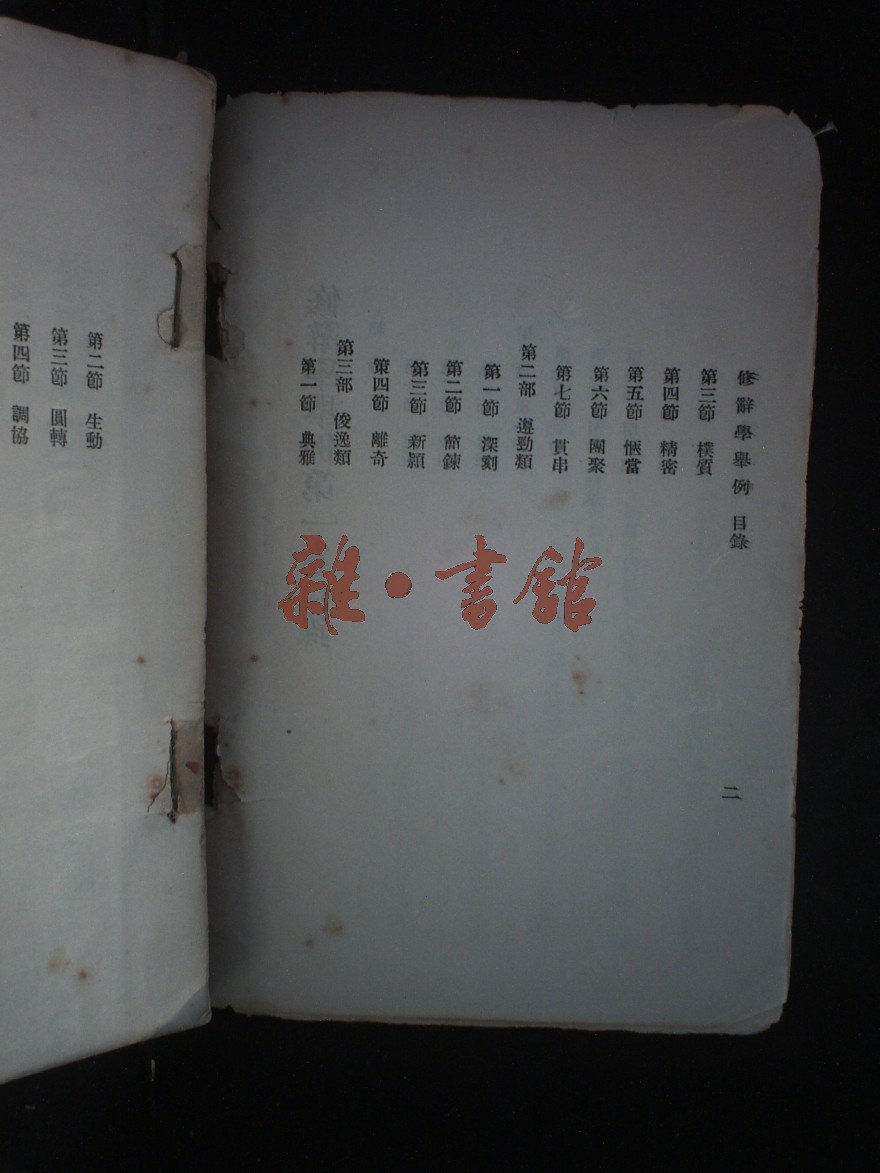 修辭學舉例 目錄
二
第三節 樸質
第四節 精密
第五節 愜當
第六節 團聚
第七節 貫串
第二部 遒勁類
第一節 深刻
第二節 簡鍊
第三節 新穎
第四節 離奇
第三部 俊逸類
第一節 典雅
第二節 生動
第三節 圓轉
第四節 調協
雜·書館